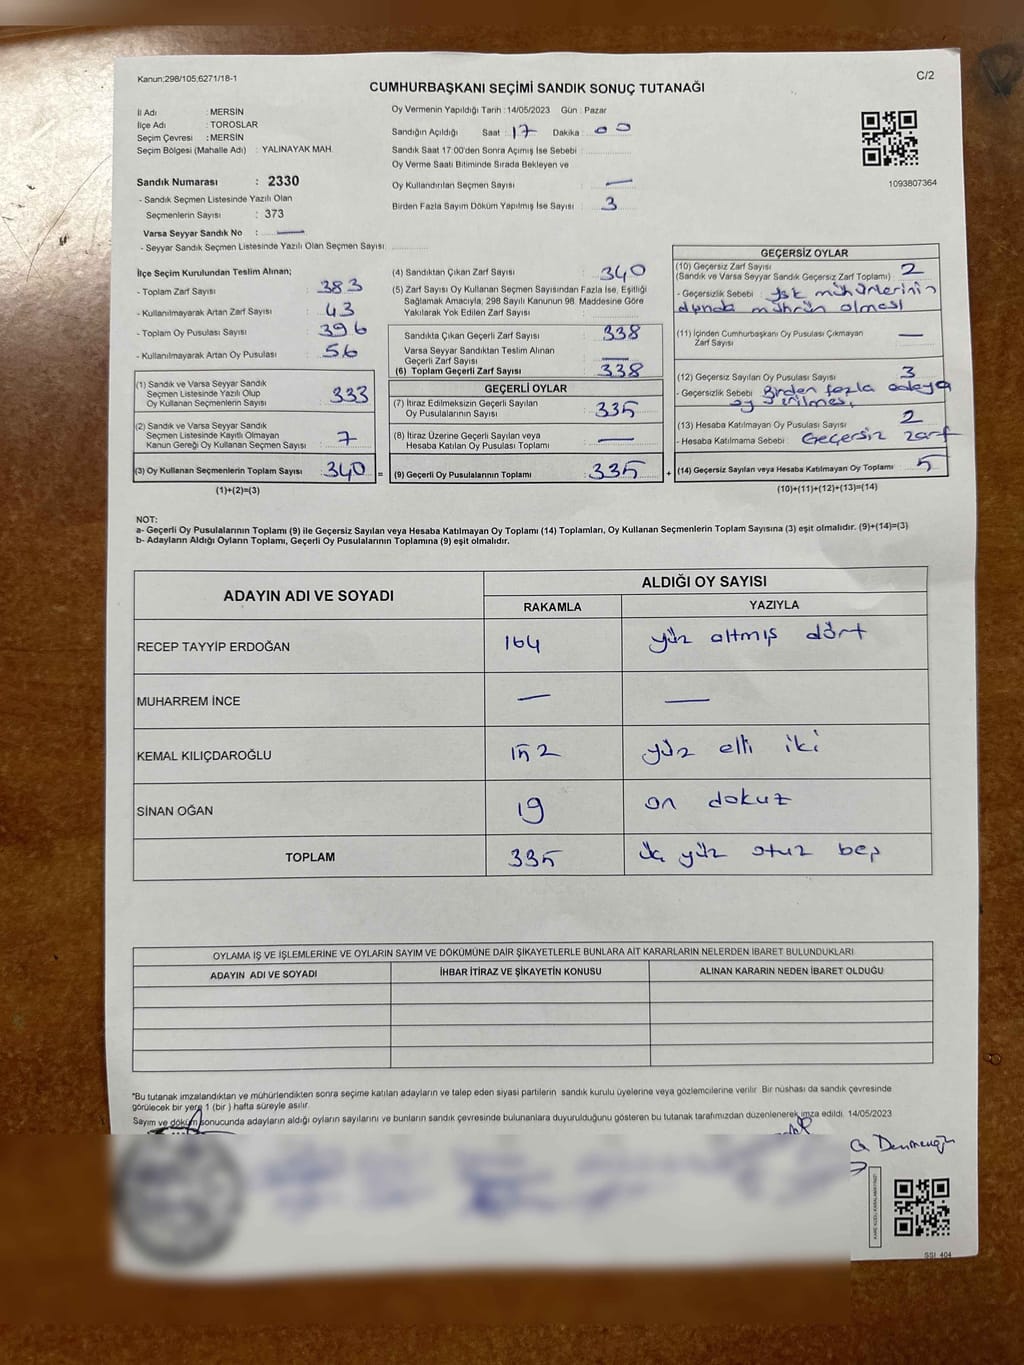 Kanun:298/105,6271/18-1
C/2
CUMHURBAŞKANI SEÇİMİ SANDIK SONUÇ TUTANAĞI
İl Adı : MERSİN
İlçe Adı : TOROSLAR
Seçim Çevresi : MERSİN
Seçim Bölgesi (Mahalle Adı) : YALINAYAK MAH.
Sandık Numarası : 2330
- Sandık Seçmen Listesinde Yazılı Olan
Seçmenlerin Sayısı : 373
Varsa Seyyar Sandık No : —
- Seyyar Sandık Seçmen Listesinde Yazılı Olan Seçmen Sayısı:
Oy Vermenin Yapıldığı Tarih : 14/05/2023 Gün : Pazar
Sandığın Açıldığı Saat : 17 Dakika : 00
Sandık Saat 17:00'den Sonra Açımış İse Sebebi :
Oy Verme Saati Bitiminde Sırada Bekleyen ve
Oy Kullandırılan Seçmen Sayısı : —
Birden Fazla Sayım Döküm Yapılmış İse Sayısı : 3
1093807364
İlçe Seçim Kurulundan Teslim Alınan;
- Toplam Zarf Sayısı : 383
- Kullanılmayarak Artan Zarf Sayısı : 43
- Toplam Oy Pusulası Sayısı : 396
- Kullanılmayarak Artan Oy Pusulası : 56
(1) Sandık ve Varsa Seyyar Sandık
Seçmen Listesinde Yazılı Olup
Oy Kullanan Seçmenlerin Sayısı : 333
(2) Sandık ve Varsa Seyyar Sandık
Seçmen Listesinde Kayıtlı Olmayan
Kanun Gereği Oy Kullanan Seçmen Sayısı : 7
(3) Oy Kullanan Seçmenlerin Toplam Sayısı : 340 =
(1)+(2)=(3)
(4) Sandıktan Çıkan Zarf Sayısı : 340
(5) Zarf Sayısı Oy Kullanan Seçmen Sayısından Fazla İse, Eşitliği
Sağlamak Amacıyla, 298 Sayılı Kanunun 98. Maddesine Göre
Yakılarak Yok Edilen Zarf Sayısı :
Sandıkta Çıkan Geçerli Zarf Sayısı : 338
Varsa Seyyar Sandıktan Teslim Alınan
Geçerli Zarf Sayısı : —
(6) Toplam Geçerli Zarf Sayısı : 338
GEÇERLİ OYLAR
(7) İtiraz Edilmeksizin Geçerli Sayılan
Oy Pusulalarının Sayısı : 335
(8) İtiraz Üzerine Geçerli Sayılan veya
Hesaba Katılan Oy Pusulası Sayısı : —
(9) Geçerli Oy Pusulalarının Toplamı : 335 +
GEÇERSİZ OYLAR
(10) Geçersiz Zarf Sayısı : 2
(Sandık ve Varsa Seyyar Sandık Geçersiz Zarf Toplamı)
- Geçersizlik Sebebi : Ysk mühürlerinin
dışında mührün olması
(11) İçinden Cumhurbaşkanı Oy Pusulası Çıkmayan
Zarf Sayısı : —
(12) Geçersiz Sayılan Oy Pusulası Sayısı : 3
- Geçersizlik Sebebi : Birden fazla adaya
oy verilmesi
(13) Hesaba Katılmayan Oy Pusulası Sayısı : 2
- Hesaba Katılmama Sebebi : Geçersiz zarf
(14) Geçersiz Sayılan veya Hesaba Katılmayan Oy Toplamı : 5
(10)+(11)+(12)+(13)=(14)
NOT:
a- Geçerli Oy Pusulalarının Toplamı (9) ile Geçersiz Sayılan veya Hesaba Katılmayan Oy Toplamı (14) Toplamları, Oy Kullanan Seçmenlerin Toplam Sayısına (3) eşit olmalıdır. (9)+(14)=(3)
b- Adayların Aldığı Oyların Toplamı, Geçerli Oy Pusulalarının Toplamına (9) eşit olmalıdır.
ADAYIN ADI VE SOYADI
ALDIĞI OY SAYISI
RAKAMLA YAZIYLA
RECEP TAYYİP ERDOĞAN 164 yüz altmış dört
MUHARREM İNCE — —
KEMAL KILIÇDAROĞLU 152 yüz elli iki
SİNAN OĞAN 19 on dokuz
TOPLAM 335 üç yüz otuz beş
OYLAMA İŞ VE İŞLEMLERİNE VE OYLARIN SAYIM VE DÖKÜMÜNE DAİR ŞİKAYETLERLE BUNLARA AİT KARARLARIN NELERDEN İBARET BULUNDUKLARI
ADAYIN ADI VE SOYADI İHBAR İTİRAZ VE ŞİKAYETİN KONUSU ALINAN KARARIN NEDEN İBARET OLDUĞU
*Bu tutanak imzalandıktan ve mühürlendikten sonra seçime katılan adayların ve talep eden siyasi partilerin sandık kurulu üyelerine veya gözlemcilerine verilir. Bir nüshası da sandık çevresinde
görülecek bir yere 1 (bir) hafta süreyle asılır.
Sayım ve döküm sonucunda adayların aldığı oyların sayılarını ve bunların sandık çevresinde bulunanlara duyurulduğunu gösteren bu tutanak tarafımızdan düzenlenerek imza edildi. 14/05/2023
SSI_404